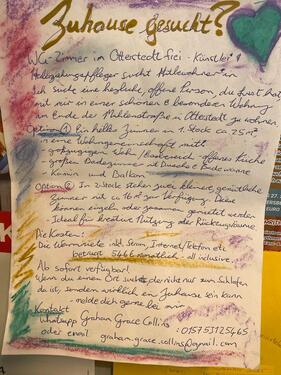 Zuhause gesucht?
WG-Zimmer im Ottersted frei - Künstler &
Heilerziehungspfleger sucht Mitbewohner:in
Ich suche eine herzliche, offene Person, die Lust hat
mit mir in einer schönen & besonderen Wohnung
am Ende der Mühlenstraße in Otterstedt zu wohnen
Option ① Ein helles Zimmer im 1. Stock ca. 25m²
in einer Wohngemeinschaft mit:
Wohn/Essbereich offener Küche
- großes Badezimmer mit Dusche & Badewanne
- Kamin und Balkon
Option ② Im 2. Stock stehen zwei kleinere, gemütliche
Zimmer mit ca 16 m² zur Verfügung. Diese
können einzeln oder zusammen gemietet werden
- Ideal für kreative Nutzung oder Rückzugsräume.
Die Kosten:
Die Warmmiete inkl. Strom, Internet/Telefon etc
beträgt 546€ monatlich - all inclusive.
Ab sofort verfügbar!
Wenn du einen Ort suchst der nicht nur zum Schlafen
da ist, sondern wirklich ein Zuhause sein kann
- melde dich gerne bei mir
Kontakt
Whatsapp Graham Grace Collins: 015753125465
oder email graham.grace.collins@gmail.com